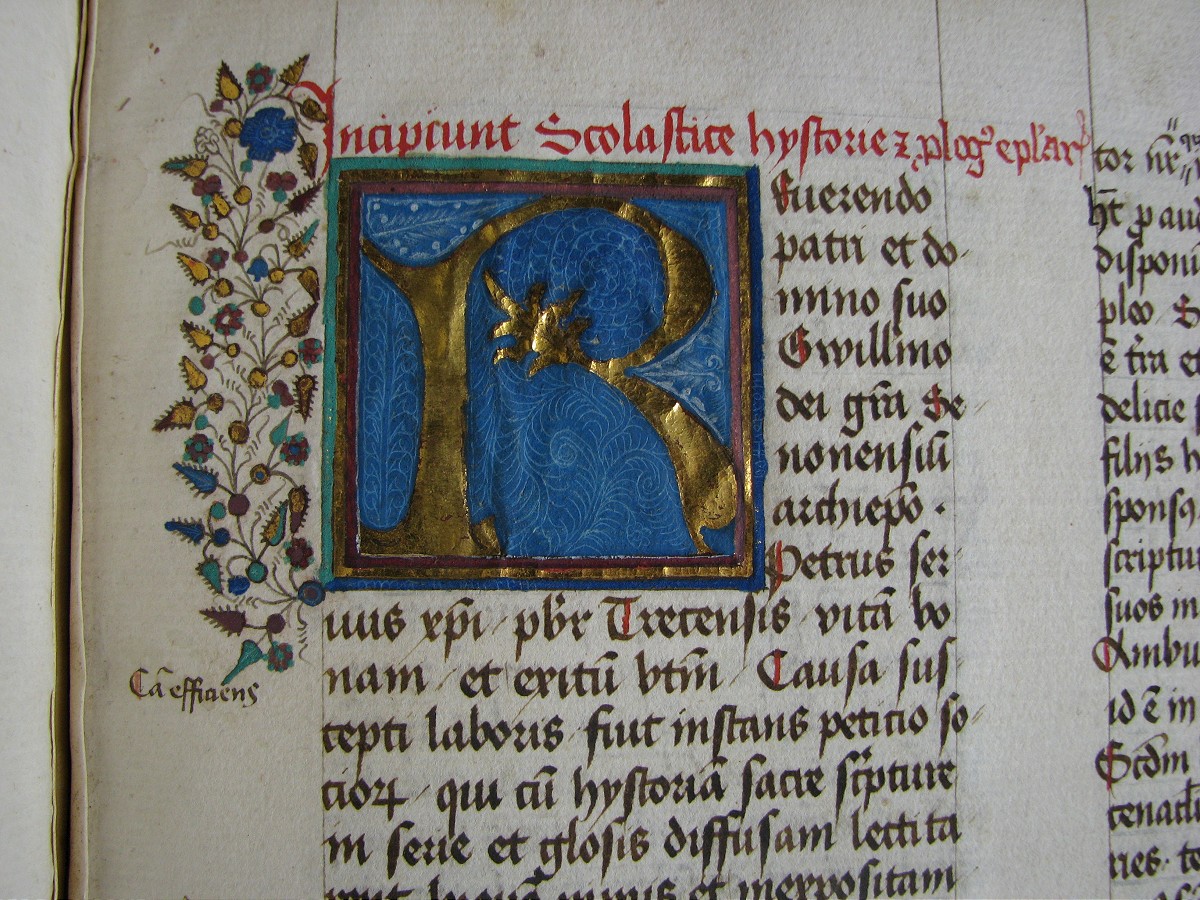 Incipiunt Scolastice hystorie ⁊ plogꝰ eplar
Reuerendo
patri et do-
mino suo
Gwillmo
dei gr̄a Se-
nonensiū
archiep̄o .
Petrus ser-
uus xp̄i pbr̄ Trecensis vitā bo
nam et exitū vtm̄ Causa sus
cepti laboris fuit instans peticio so-
cioꝝ qui cū hystoriā sacre sc̄pture
in serie et glosis diffusam lectita
et inexpositam
Cā efficiens
tor nr̄
ht̄ p aud
disponi
pleo S
ē t̄ra et
delicie
filijs h
sponsꝙ
scriptu
suos in
Ambu
id ē in
Scd̄m
cenacl
ries. te